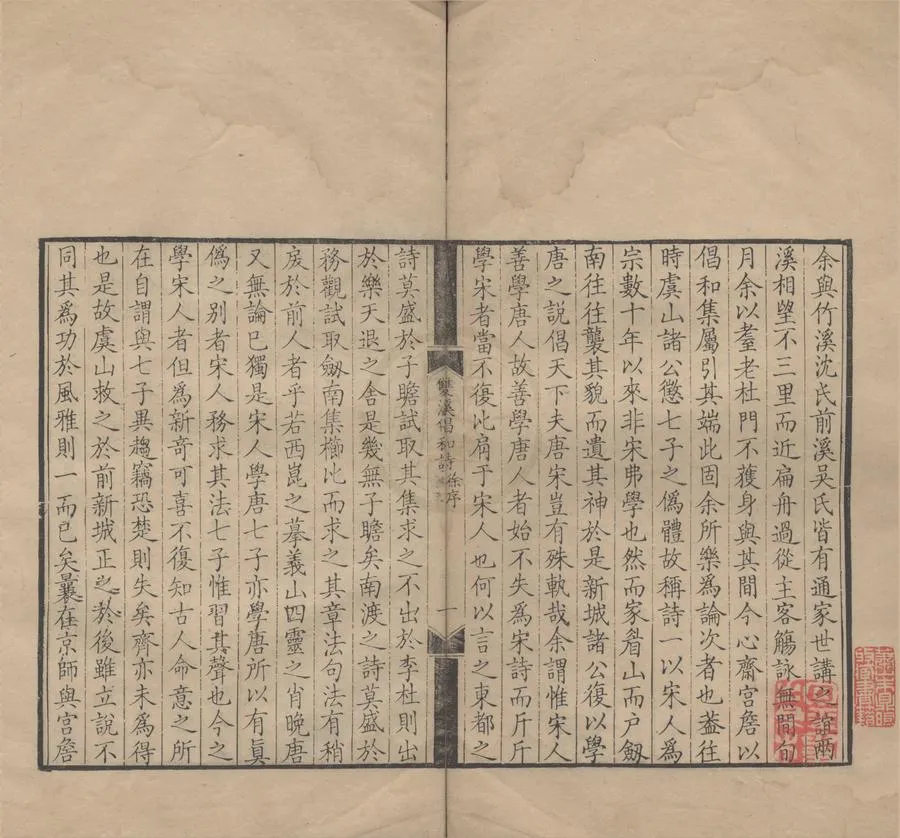 余與竹溪沈氏前溪吳氏皆有通家世講之誼兩
溪相望不三里而近扁舟過從主客觴詠無間旬
月余以耋老杜門不獲身與其間今心齋宮詹以
倡和集屬引其端此固余所樂為論次者也葢往
時虞山諸公懲七子之偽體故稱詩一以宋人為
宗數十年以來非宋弗學也然而家眉山而户劔
南往往襲其貌而遺其神於是新城諸公復以學
唐之說倡天下夫唐宋豈有殊軌哉余謂惟宋人
善學唐人故善學唐人者始不失為宋詩而斤斤
學宋者當不復比肩于宋人也何以言之東都之
雙溪倡和詩 徐序 一
詩莫盛於子瞻試取其集求之不出於李杜則出
於樂天退之舍是幾無子瞻矣南渡之詩莫盛於
務觀試取劔南集櫛比而求之其章法句法有稍
戾於前人者乎若西崑之摹義山四靈之肖晚唐
又無論已獨是宋人學唐七子亦學唐所以有眞
僞之别者宋人務求其法七子惟習其聲也今之
學宋人者但為新奇可喜不復知古人命意之所
在自謂與七子異趨竊恐楚則失矣齊亦未為得
也是故虞山救之於前新城正之於後雖立說不
同其為功於風雅則一而已矣曩在京師與宮詹